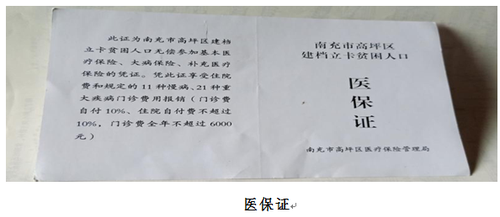 此证为南充市高坪区建档
立卡贫困人口无偿参加基本医
疗保险、大病保险、补充医疗
保险的凭证。凭此证享受住院
费和规定的11种慢病、21种重
大疾病门诊费用报销（门诊费
自付10%、住院自付费不超过
10%，门诊费全年不超过6000
元）
南充市高坪区
建档立卡贫困人口
医
保
证
南充市高坪区医疗保险管理局
医保证